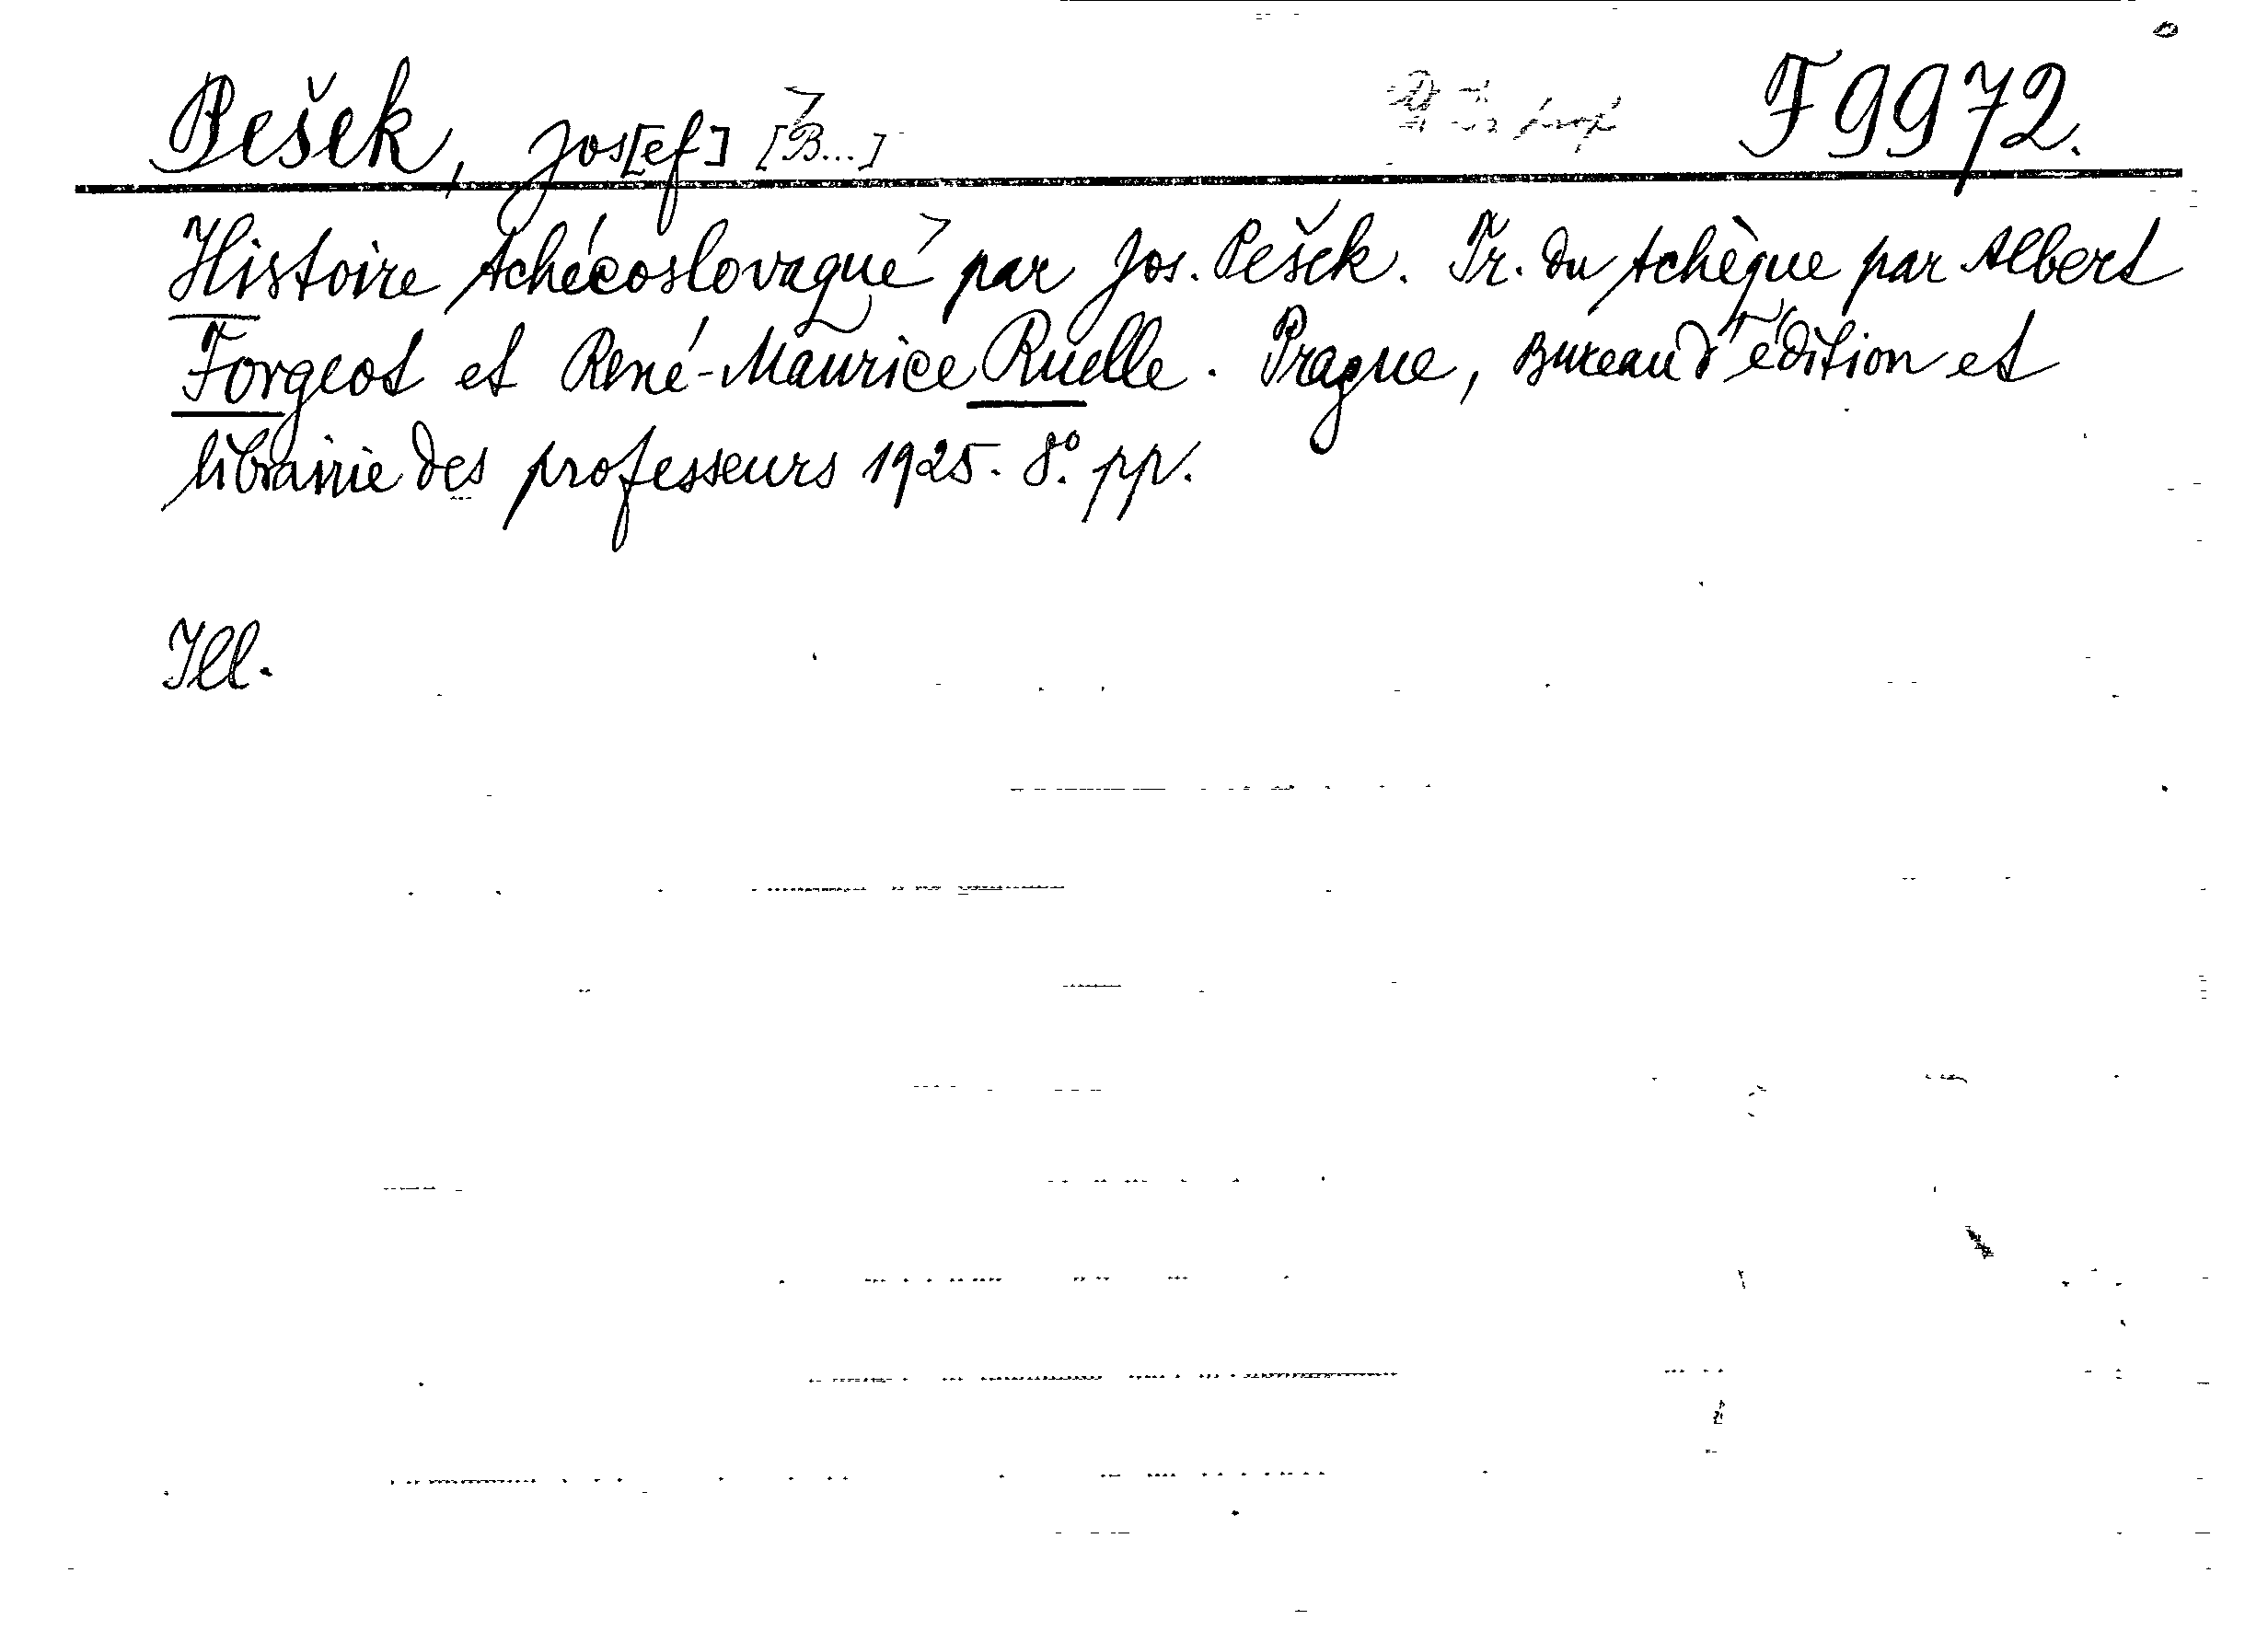 Pešek, Jos[ef] [B...] F 9972.
Histoire tchécoslovaque par Jos. Pešek. Tr. du tchèque par Albert
Forgeot et René-Maurice Ruelle. Prague, Bureau d'édition et
librairie des professeurs 1925. 8° pp.
Ill.